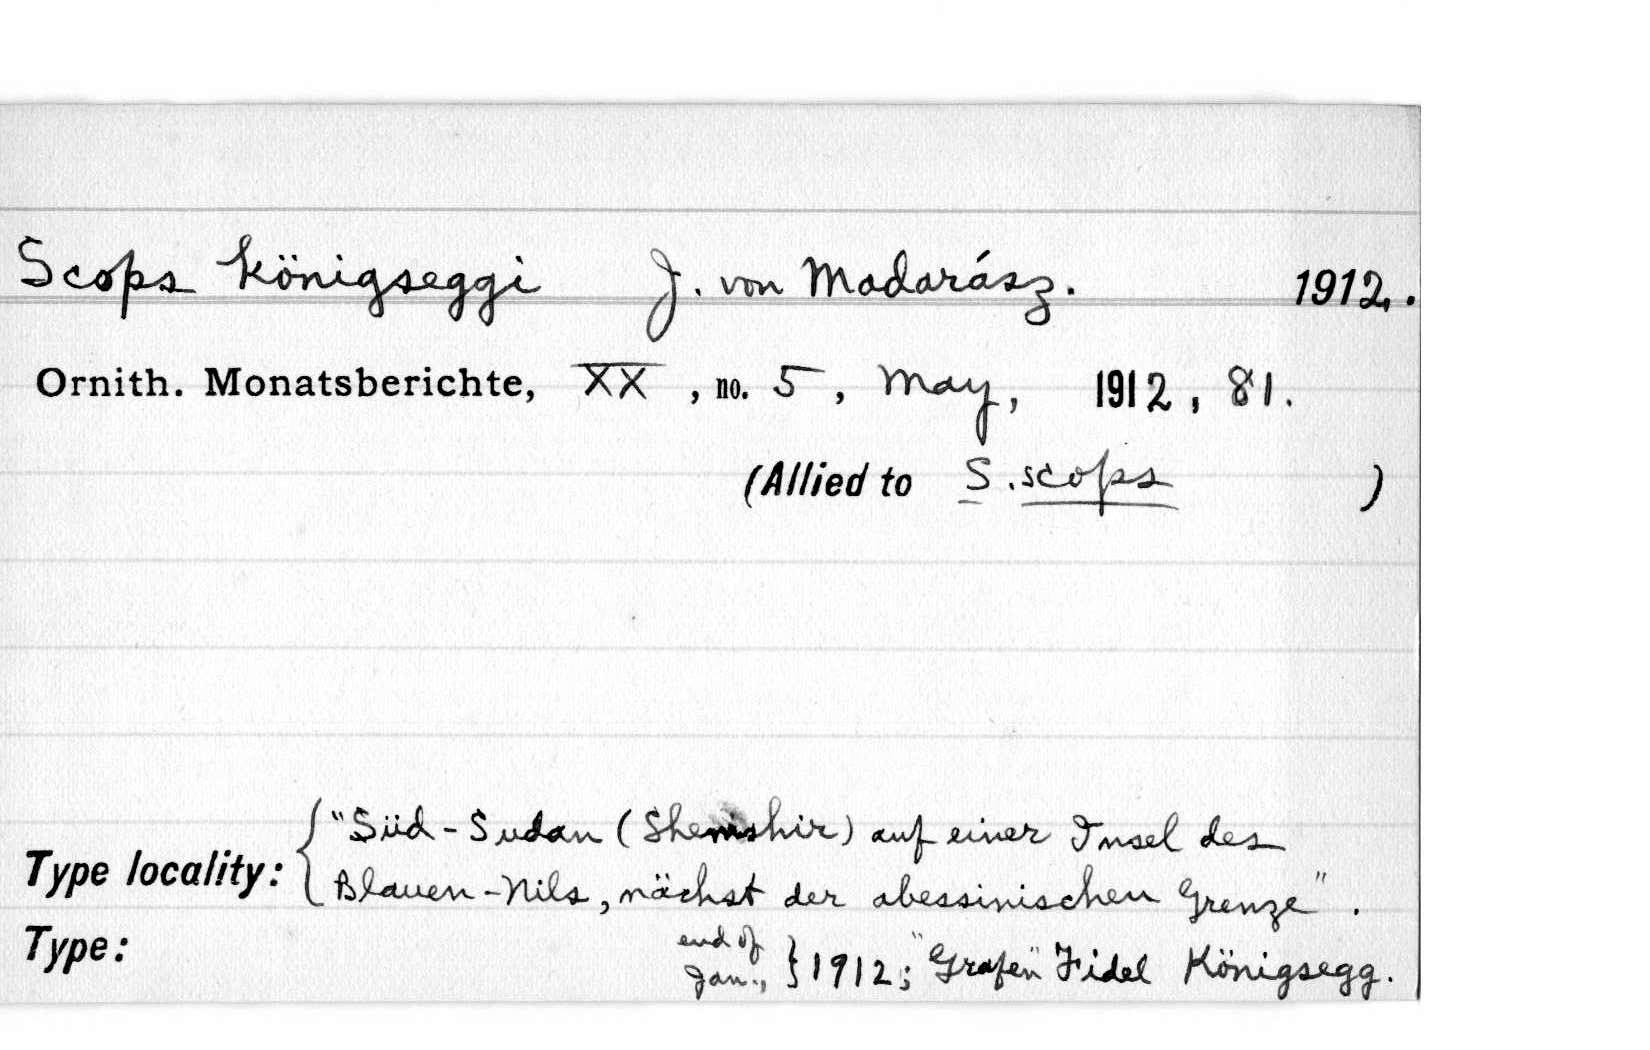 Scops königseggi J. von Madarász. 1912.
Ornith. Monatsberichte, XX, no. 5, May, 1912, 81.
(Allied to S. scops )
"Süd-Sudan (Shemshir) auf einer Insel des
Type locality: { Blauen-Nils, nächst der abessinischen Grenze".
Type: end of Jan., } 1912; "Grafen" Fidel Königsegg.